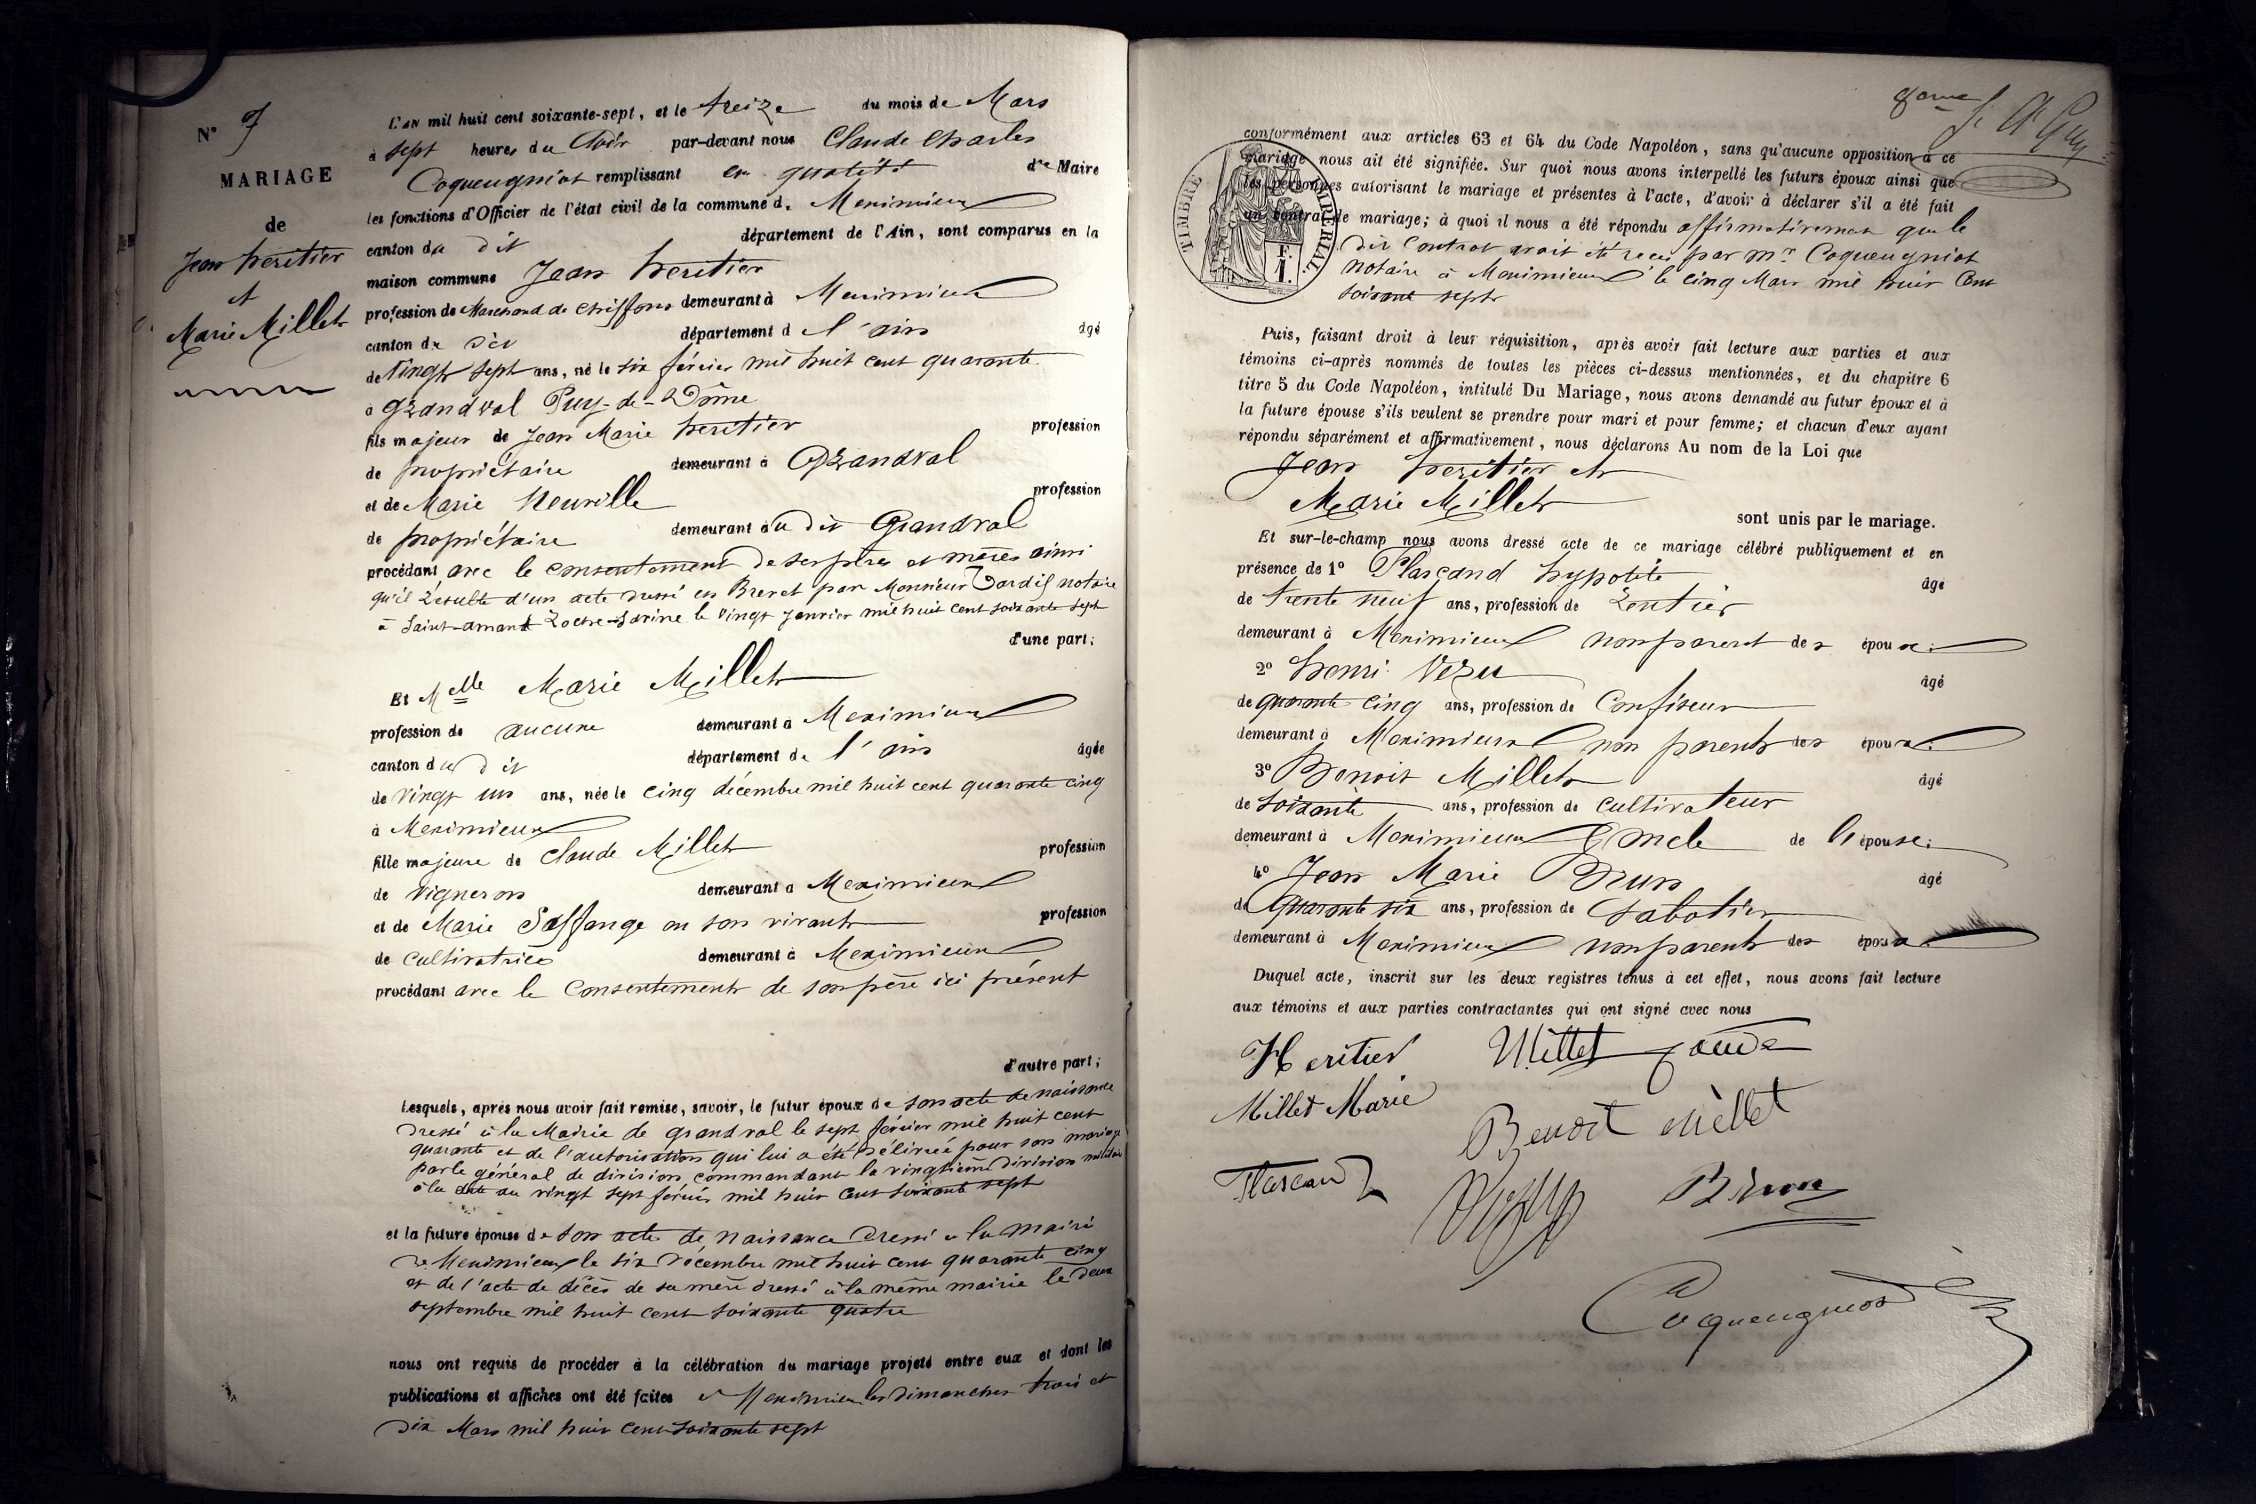 N° 7
MARIAGE
de
Jean heritier
et
Marie Millet
L'AN mil huit cent soixante-sept, et le treize du mois de Mars
à sept heures du Soir par-devant nous Claude Charles
Coqueugniot remplissant en qualité de Maire
les fonctions d'Officier de l'état civil de la commune de Meximieux
canton du dit département de l'Ain, sont comparus en la
maison commune Jean heritier
profession de Marchand de chiffons demeurant à Meximieux
canton du dit département de l'ain âgé
de Vingt sept ans, né le six février mil huit cent quarante
à grandval Puy-de-Dôme
fils majeur de Jean Marie heritier profession
de propriétaire demeurant à Grandval
et de Marie Neuville profession
de propriétaire demeurant au dit Grandval
procédant avec le consentement de ses pères et mères ainsi
qu'il résulte d'un acte dressé en Brevet par Monsieur notaire
à Saint-amant Roche-Savine le vingt Janvier mil huit cent soixante sept
d'une part;
Et Melle Marie Millet
profession de aucune demeurant à Meximieux
canton du dit département de l'ain âgée
de Vingt un ans, née le cinq décembre mil huit cent quarante cinq
à Meximieux
fille majeure de Claude Millet profession
de Vigneron demeurant à Meximieux
et de Marie Saffange en son vivant profession
de cultivatrice demeurant à Meximieux
procédant avec le Consentement de son père ici présent
d'autre part;
Lesquels, après nous avoir fait remise, savoir, le futur époux de son acte de naissance
dressé à la Mairie de grandval le sept février mil huit cent
quarante et de l'autorisation qui lui a été délivrée pour son mariage
par le général de division commandant la vingtième division militaire
à la date du vingt sept février mil huit cent soixante sept
et la future épouse de son acte de naissance dressé à la mairie
de Meximieux le six décembre mil huit cent quarante cinq
et de l'acte de décès de sa mère dressé à la même mairie le deux
septembre mil huit cent soixante quatre
nous ont requis de procéder à la célébration du mariage projeté entre eux et dont les
publications et affiches ont été faites à Meximieux les dimanches trois et
dix Mars mil huit cent soixante sept
8eme
conformément aux articles 63 et 64 du Code Napoléon, sans qu'aucune opposition à ce
mariage nous ait été signifiée. Sur quoi nous avons interpellé les futurs époux ainsi que
les personnes autorisant le mariage et présentes à l'acte, d'avoir à déclarer s'il a été fait
un contrat de mariage; à quoi il nous a été répondu affirmativement que le
dit Contrat avait été reçu par Mr Coqueugniot
notaire à Meximieux le cinq Mars mil huit Cent
soixante sept
TIMBRE IMPÉRIAL
F.
1.
Puis, faisant droit à leur réquisition, après avoir fait lecture aux parties et aux
témoins ci-après nommés de toutes les pièces ci-dessus mentionnées, et du chapitre 6
titre 5 du Code Napoléon, intitulé Du Mariage, nous avons demandé au futur époux et à
la future épouse s'ils veulent se prendre pour mari et pour femme; et chacun d'eux ayant
répondu séparément et affirmativement, nous déclarons Au nom de la Loi que
Jean heritier et
Marie Millet
sont unis par le mariage.
Et sur-le-champ nous avons dressé acte de ce mariage célébré publiquement et en
présence de 1° Plascand hypolite âgé
de trente neuf ans, profession de Rentier
demeurant à Meximieux non parent des époux.
2° henri Vezu âgé
de quarante cinq ans, profession de Confiseur
demeurant à Meximieux non parent des époux.
3° Benoit Millet âgé
de soixante ans, profession de cultivateur
demeurant à Meximieux oncle de l'épouse;
4° Jean Marie Brun âgé
de Quarante six ans, profession de Sabotier
demeurant à Meximieux non parent des époux
Duquel acte, inscrit sur les deux registres tenus à cet effet, nous avons fait lecture
aux témoins et aux parties contractantes qui ont signé avec nous
Heritier Millet Claude
Millet Marie
Benoit Millet
Plascand
Brun
Coqueugniot